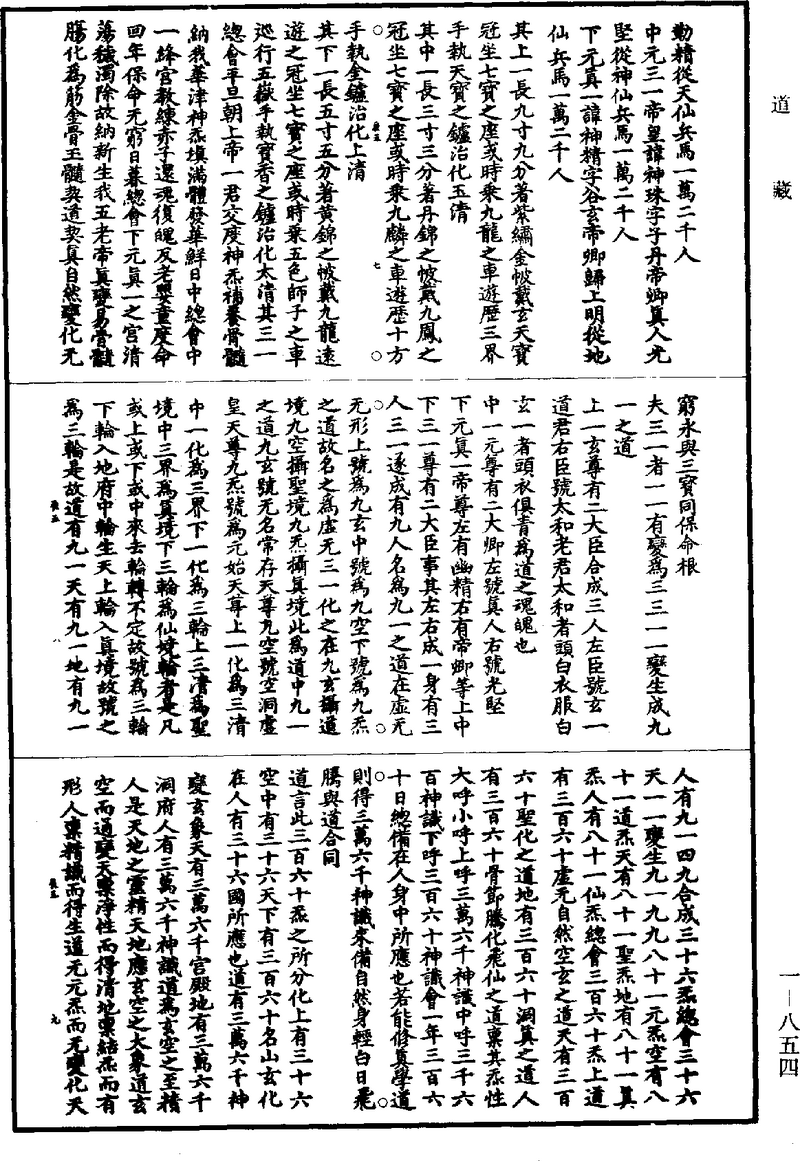 道藏
勅精從天仙兵馬一萬二千人
中元三一帝皇諱神珠字子丹帝卿真人光
堅從神仙兵馬一萬二千人
下元真一諱神精字谷玄帝卿歸上明從地
仙兵馬一萬二千人
其上一長九寸九分著紫繡金帔戴玄天寶
冠坐七寶之座或時乘九龍之車遊歷三界
手執天寶之鑪治化玉清
其中一長三寸三分著丹錦之帔戴九鳳之
冠坐七寶之座或時乘九麟之車遊歷十方
手執金鑪治化上清
七
其下一長五寸五分著黃錦之帔戴九龍遠
遊之冠坐七寶之座或時乘五色師子之車
巡行五嶽手執寶香之鑪治化太清其三一
總會平旦朝上帝一君交度神炁補養骨髓
納我華津神炁填滿體發華鮮日中總會中
一絳宮教練赤子還魂復魄反老嬰童度命
回年保命无窮日暮總會下元真一之宮清
蕩穢濁除故納新生我五老帝真變易骨髓
腸化為筋金骨玉髓契道契真自然變化无
窮永與三寶同保命根
夫三一者一一有變為三三一一變生成九
一之道
上一玄尊有二大臣合成三人左臣號玄一
道君右臣號太和老君太和者頭白衣服白
玄一者頭衣俱青為道之魂魄也
中一元尊有二大卿左號真人右號光堅
下元真一帝尊左有幽精右有帝卿等上中
下三一尊有二大臣事其左右成一身有三
人三一遂成有九人名為九一之道在虛无
无形上號為九玄中號為九空下號為九炁
之道故名之為虛无三一化之在九玄攝道
境九空攝聖境九炁攝真境此為道中九一
之道九玄號无名常存天尊九空號空洞虛
皇天尊九炁號為元始天尊上一化為三清
中一化為三界下一化為三輪上三清為聖
境中三界為真境下三輪為仙境輪者是凡
或上或下或中來去輪轉不定故號為三輪
下輪入地府中輪生天上輪入真境故號之
為三輪是故道有九一天有九一地有九一
八
人有九一四九合成三十六炁總會三十六
天一一變生九一九九八十一元炁空有八
十一道炁天有八十一聖炁地有八十一真
炁人有八十一仙炁總會三百六十炁上道
有三百六十虛无自然空玄之道天有三百
六十聖化之道地有三百六十洞真之道人
有三百六十骨節騰化飛仙之道稟其炁性
大呼小呼上呼三萬六千神識中呼三千六
百神識下呼三百六十神識會一年三百六
十日總備在人身中所應也若能修真學道
則得三萬六千神識來備自然身輕白日飛
騰與道合同
道言此三百六十炁之所分化上有三十六
空中有三十六天下有三百六十名山玄化
在人有三十六國所應也道有三萬六千神
變玄象天有三萬六千宮殿地有三萬六千
洞府人有三萬六千神識道為玄空之至精
人是天地之靈精天地應玄空之大象道玄
空而通變天稟淨性而得清地稟結炁而有
形人稟精識而得生道无元炁而无變化天
九
一—八五四